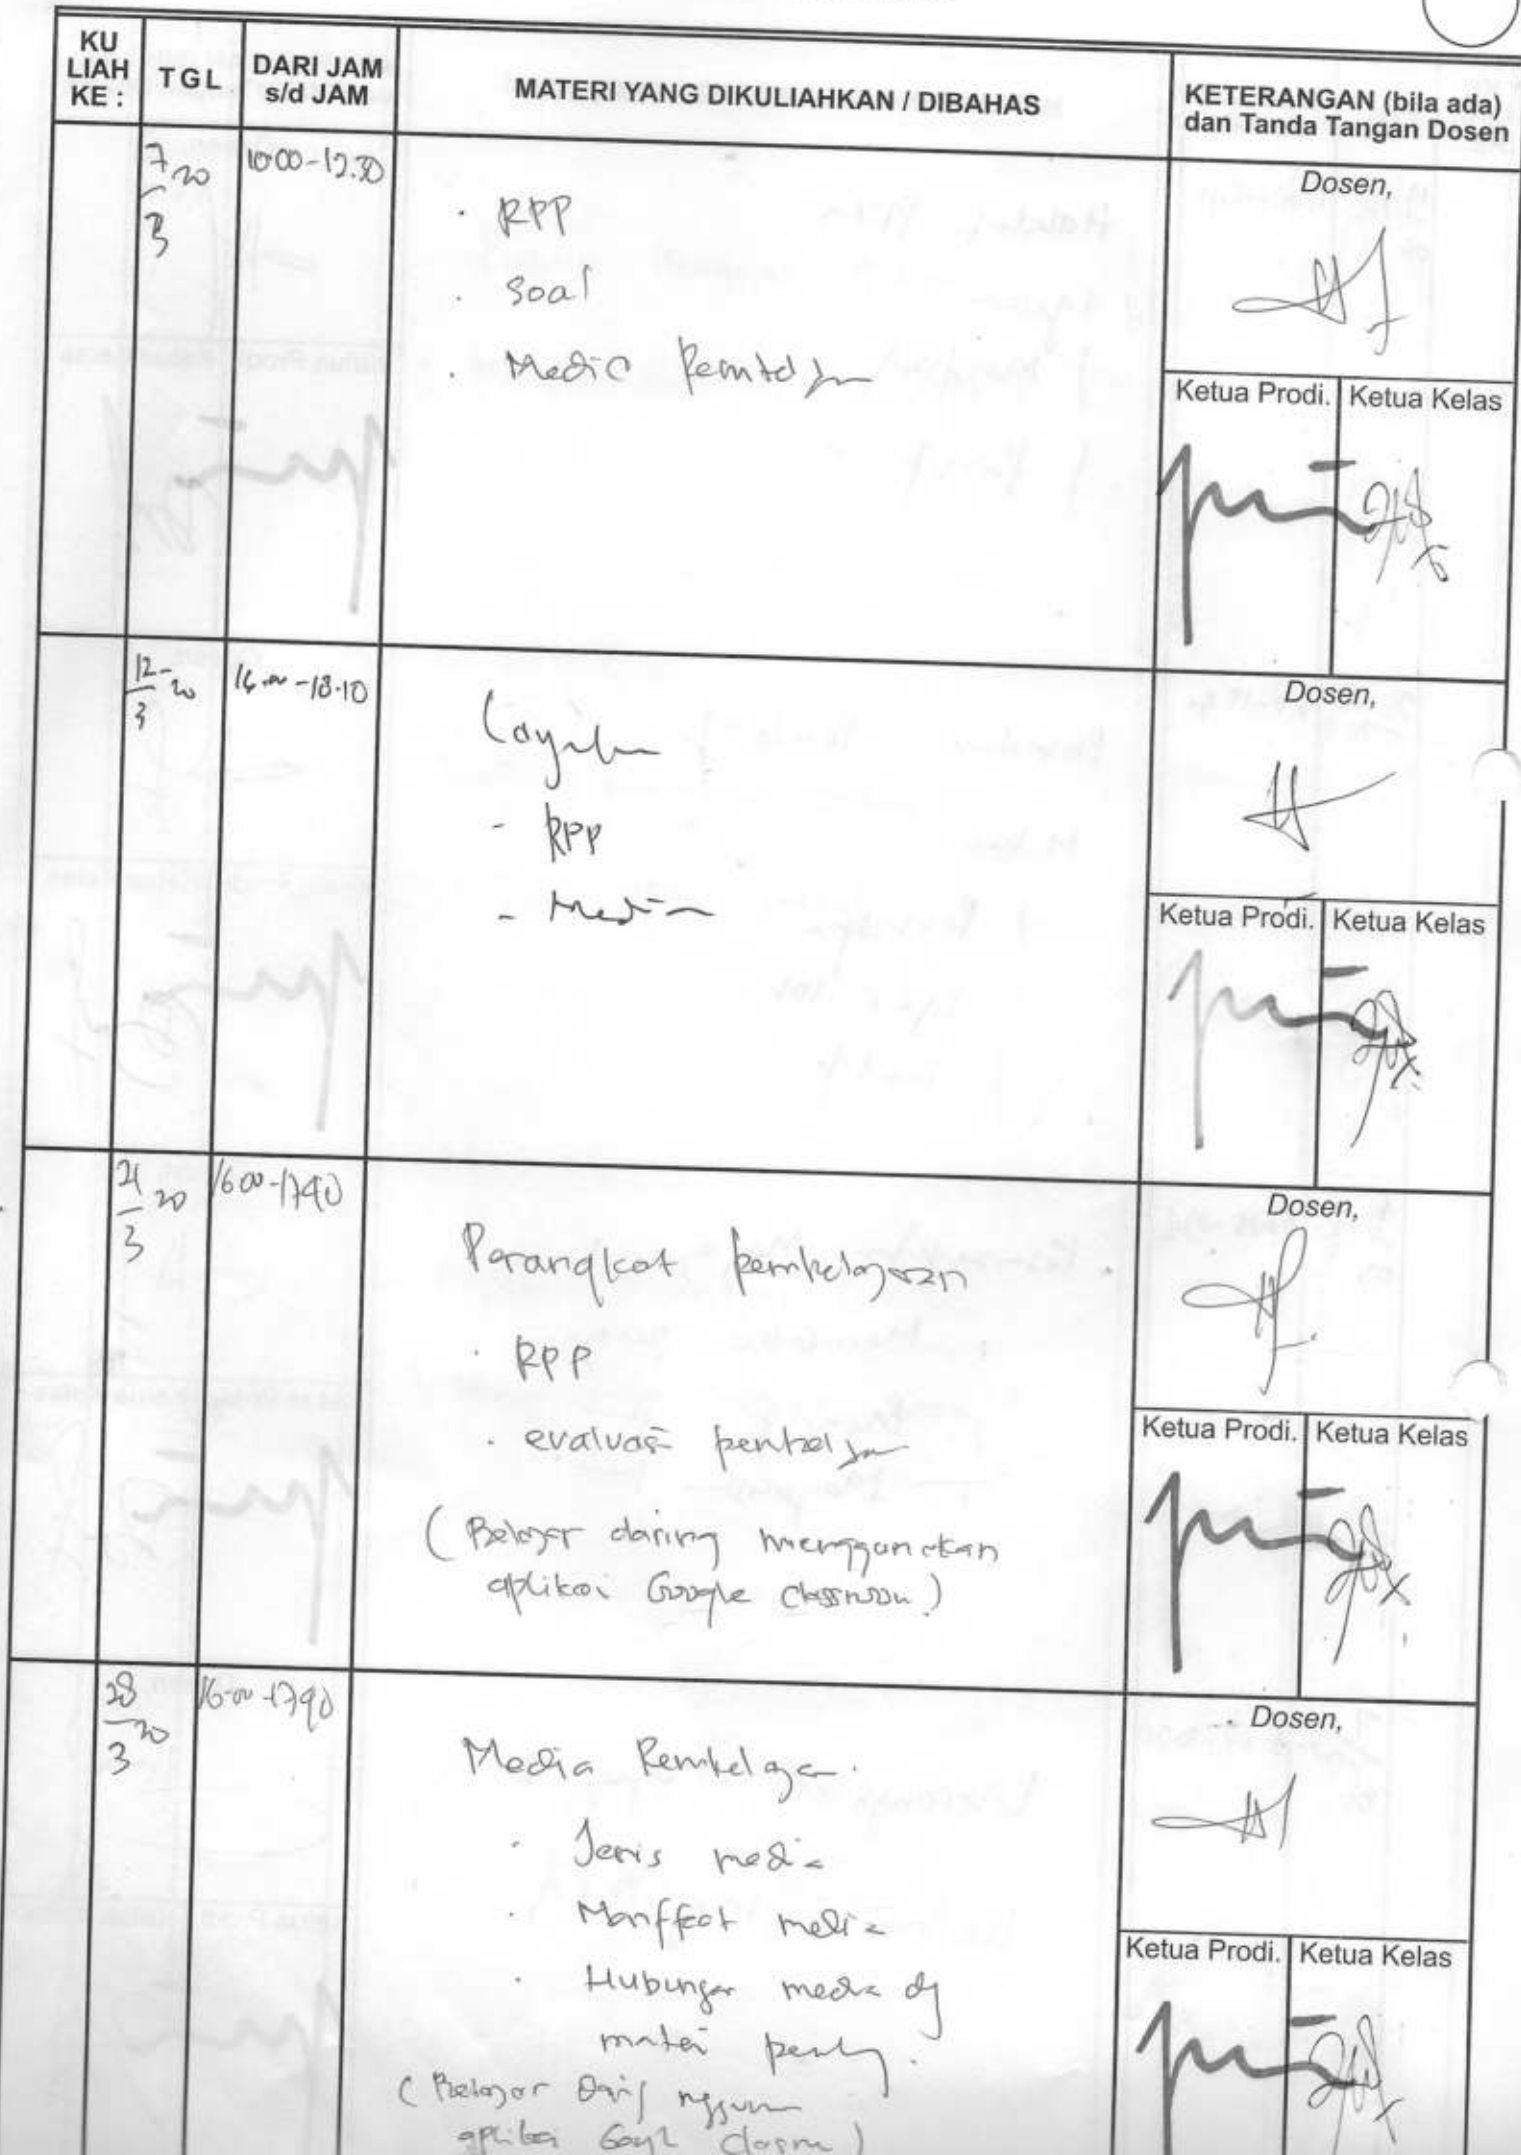 KU LIAH KE :
TGL
DARI JAM s/d JAM
MATERI YANG DIKULIAHKAN / DIBAHAS
KETERANGAN (bila ada) dan Tanda Tangan Dosen
7/3 20
10.00-12.30
· RPP
· Soal
· Media
Dosen,
Ketua Prodi.
Ketua Kelas
12/3-20
16.00-18.10
- RPP
- Media
Dosen,
Ketua Prodi.
Ketua Kelas
21/3 20
16.00-17.40
Perangkat pembelajaran
· RPP
· evaluasi
(Belajar daring menggunakan
aplikasi Google Classroom)
Dosen,
Ketua Prodi.
Ketua Kelas
28/3 20
16.00-17.40
Media
· Jenis media
· Manffaat media
· Hubungan media dg
materi
(Belajar
Dosen,
Ketua Prodi.
Ketua Kelas